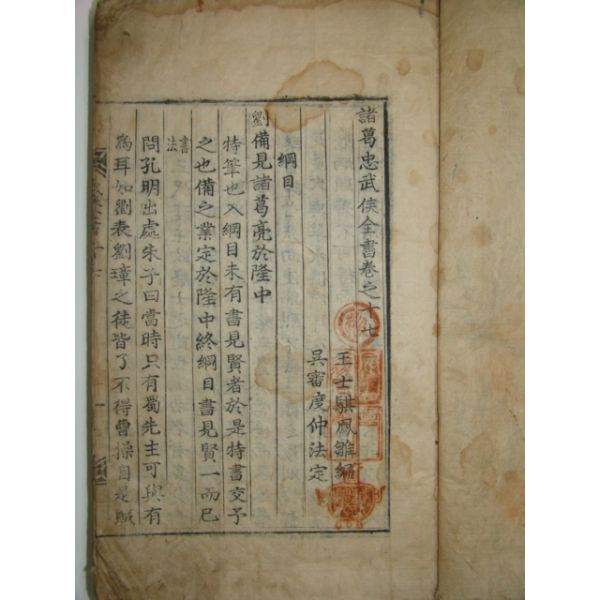 諸葛忠武侯全書卷之十七
王士騏鳳雛編
吳審度仲法定
綱目
劉備見諸葛亮於隆中
特筆也入綱目未有書見賢者於是特書交予
之也備之業定於隆中終綱目書見賢一而已
書法
問孔明出處朱子曰當時只有蜀先主可與有
為耳如劉表劉璋之徒皆了不得曹操自是賊